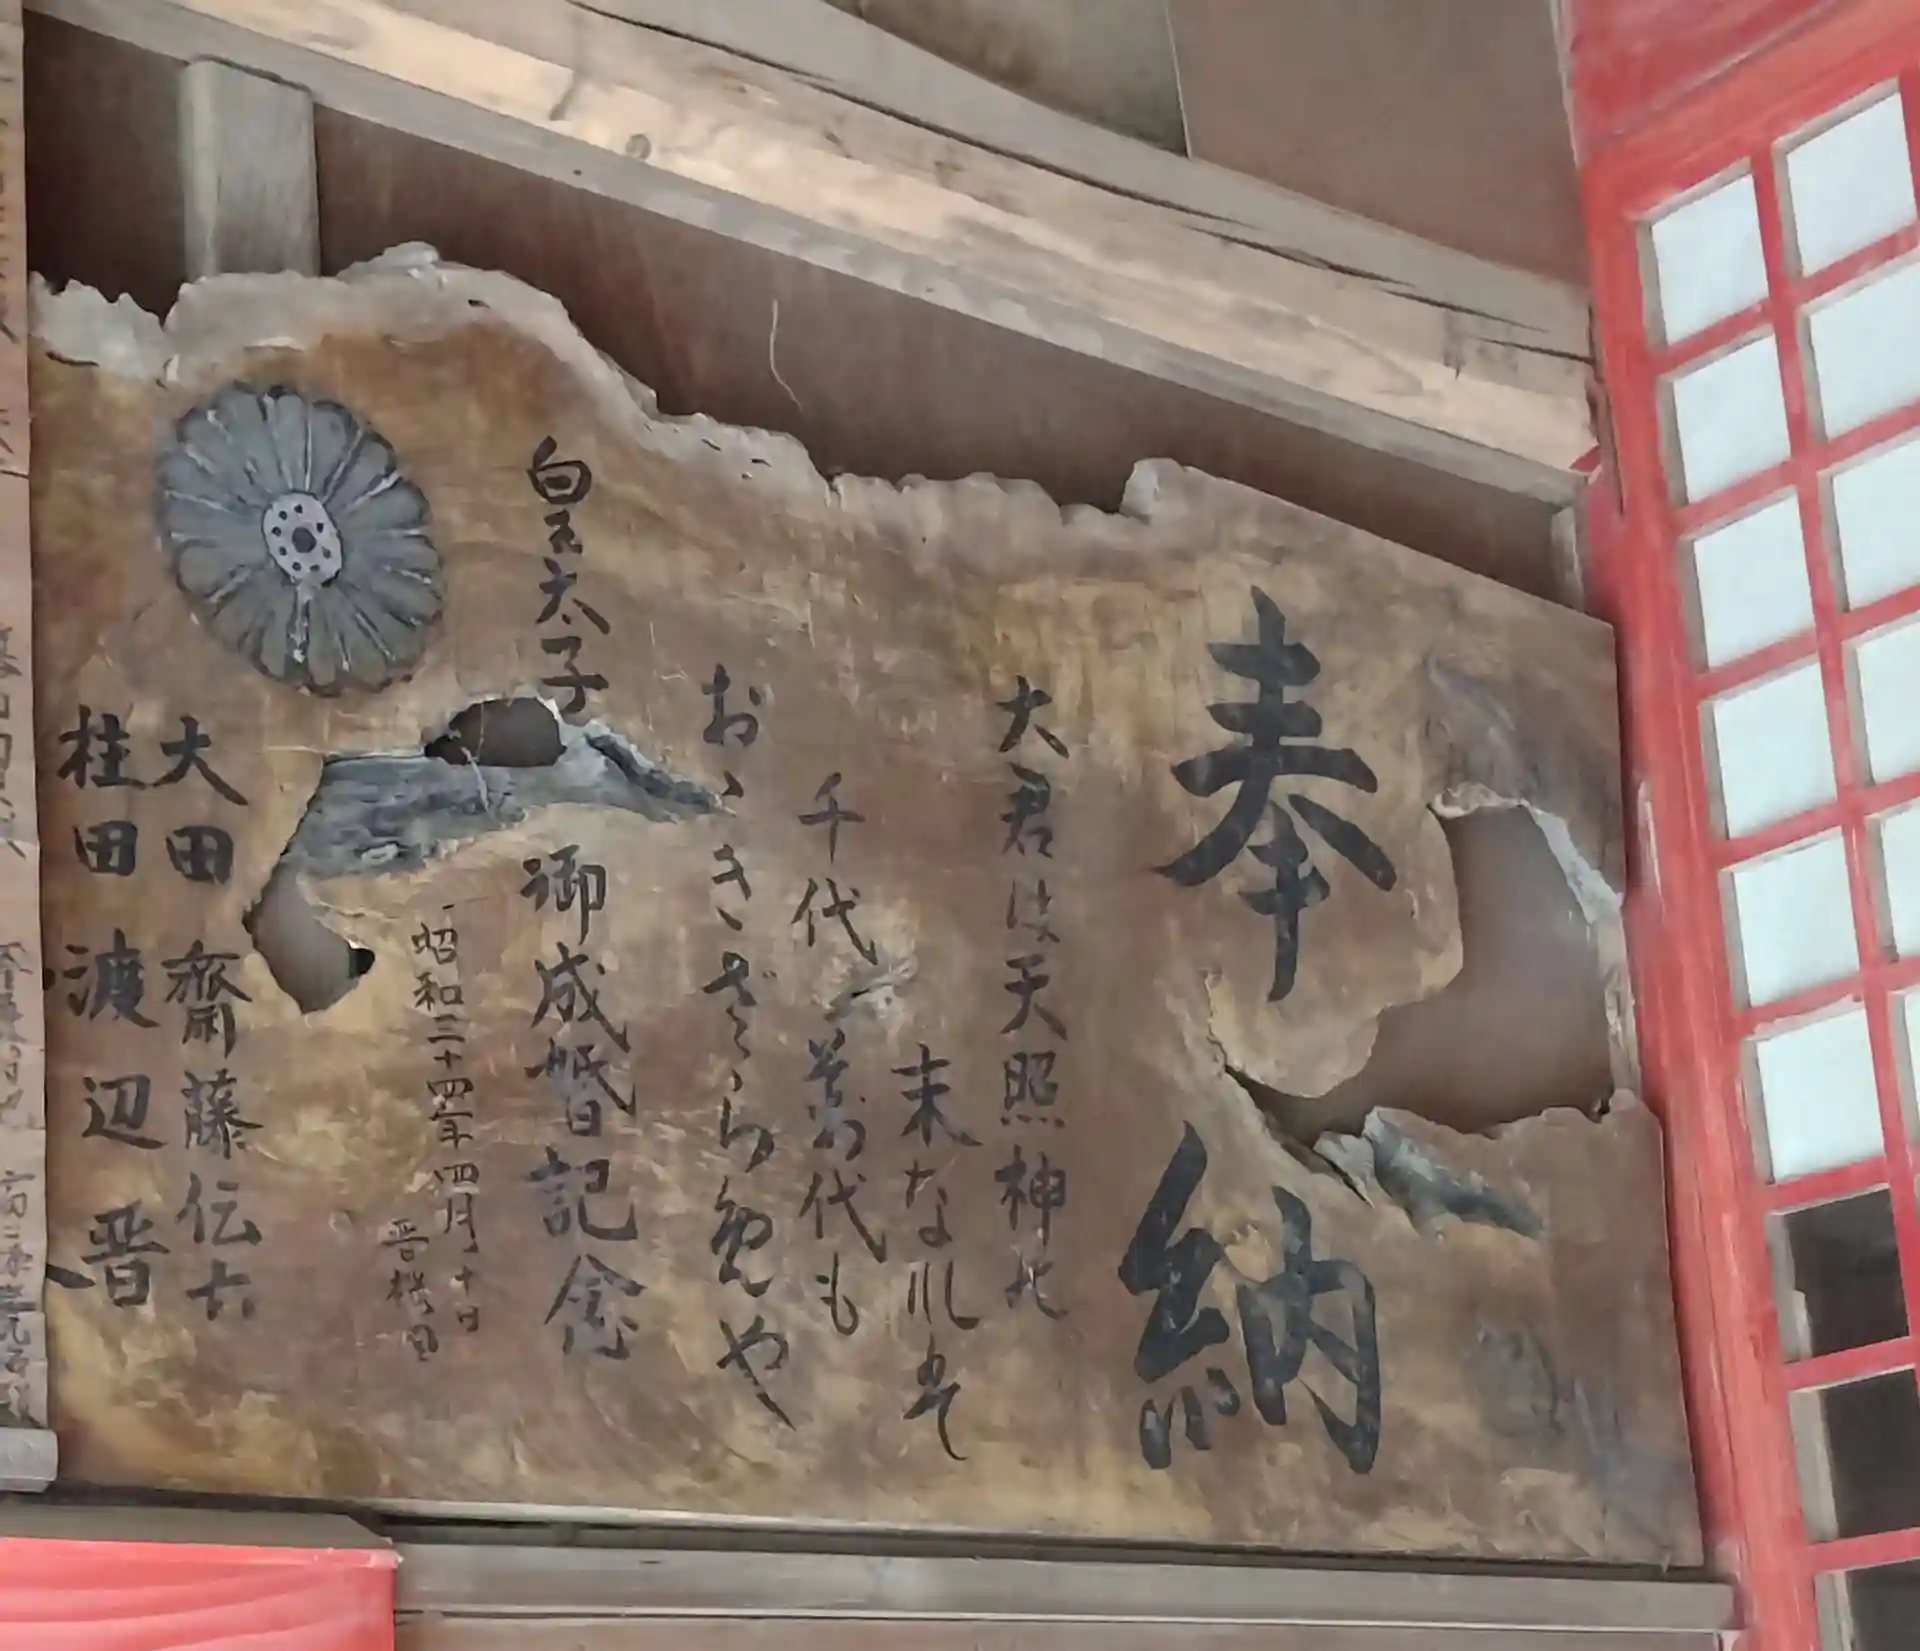 奉納
大君は天照神の
末なれはそ
千代萬代も
おゝきさらめや
皇太子
御成婚記念
昭和三十四年四月十日
晋桜目
大田 齋藤伝六
桂田 渡辺晋